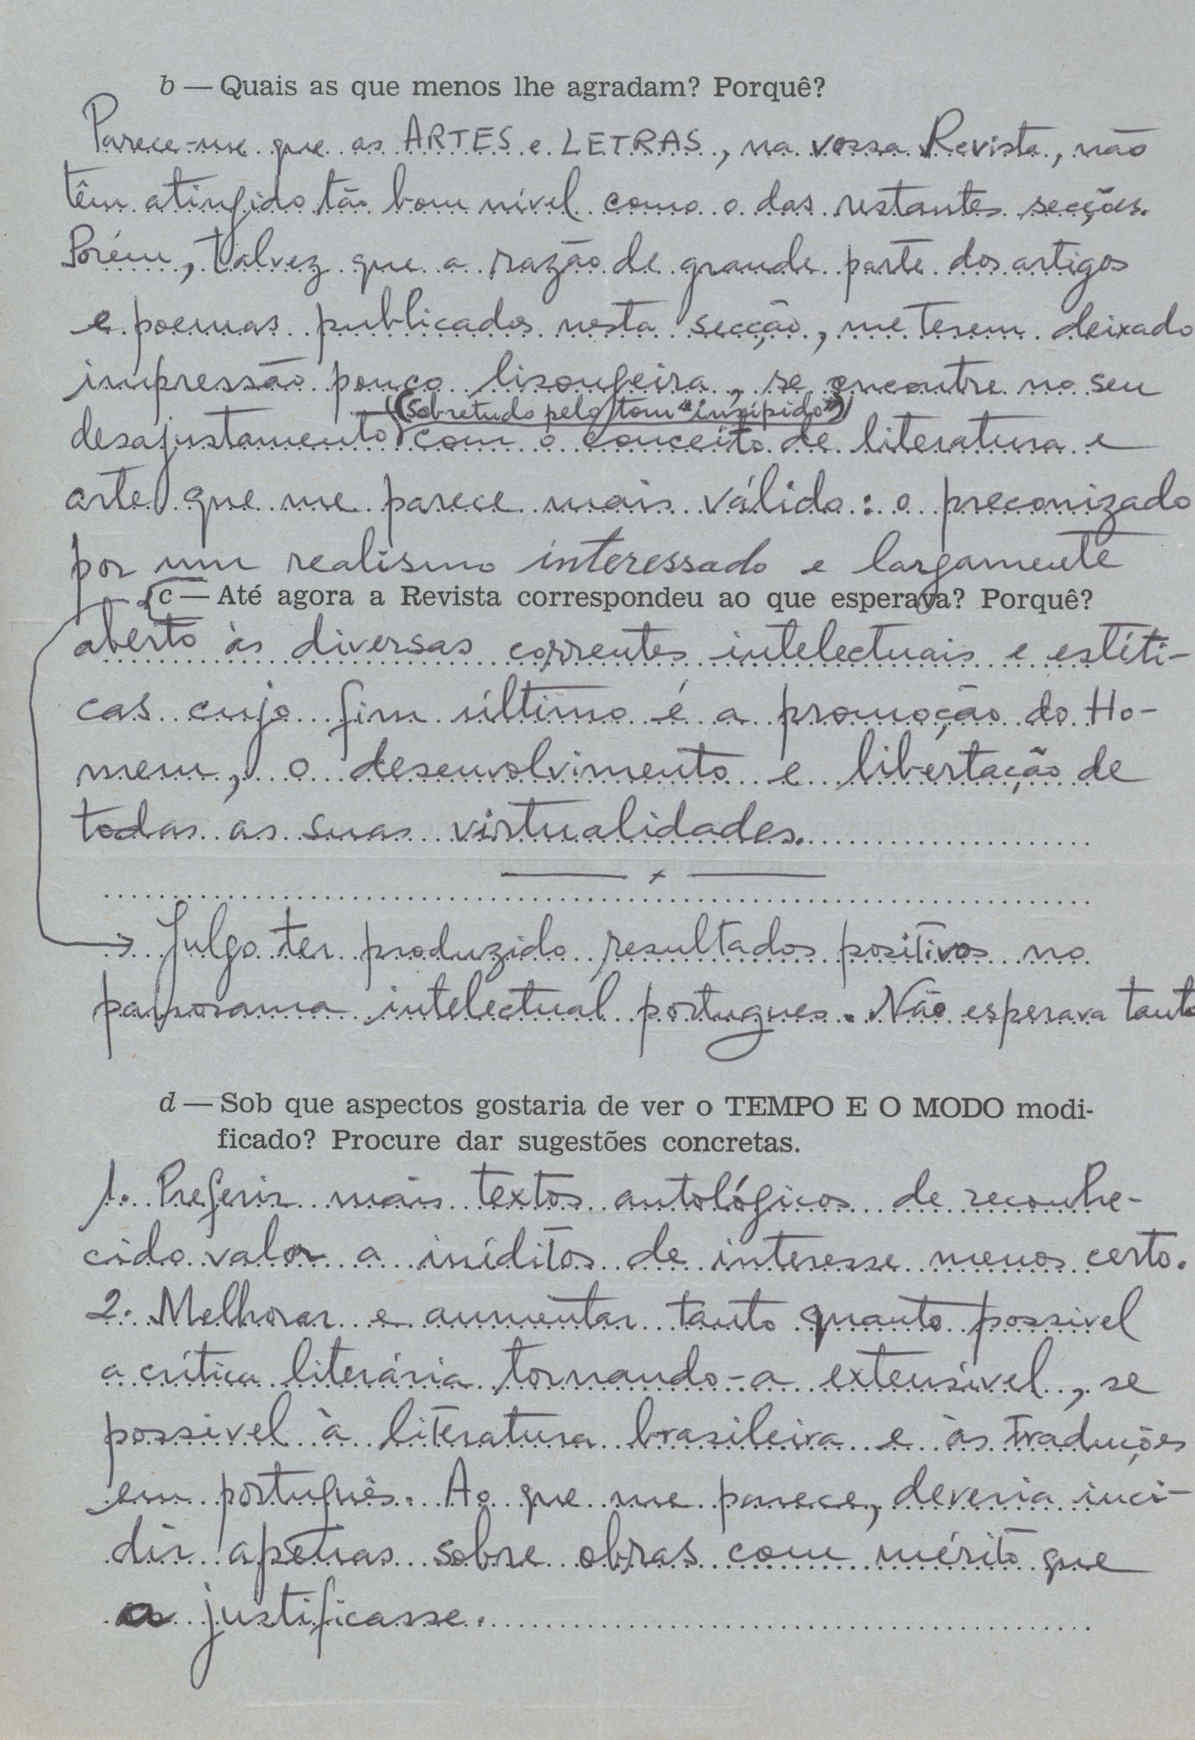 b — Quais as que menos lhe agradam? Porquê?
Parece-me que as ARTES e LETRAS, na vossa Revista, não
têm atingido tão bom nível como o das restantes secções.
Porém, talvez que a razão de grande parte dos artigos
e poemas publicados nesta secção, me terem deixado
impressão pouco lisongeira, se encontre no seu
(sobretudo pelo tom "insípido")
desajustamento com o conceito de literatura e
arte que me parece mais válido: o preconizado
por um realismo interessado e largamente
c — Até agora a Revista correspondeu ao que esperava? Porquê?
aberto às diversas correntes intelectuais e estéti-
cas cujo fim último é a promoção do Ho-
mem, o desenvolvimento e libertação de
todas as suas virtualidades.
Julgo ter produzido resultados positivos no
panorama intelectual portugues. Não esperava tanto
d — Sob que aspectos gostaria de ver o TEMPO E O MODO modi-
ficado? Procure dar sugestões concretas.
1. Preferir mais textos antológicos de reconhe-
cido valor a inéditos de interesse menos certo.
2. Melhorar e aumentar tanto quanto possivel
a crítica literária tornando-a extensível, se
possivel à literatura brasileira e às traduções
em português. Ao que me parece, deveria inci-
dir apenas sobre obras com mérito que
a justificasse.